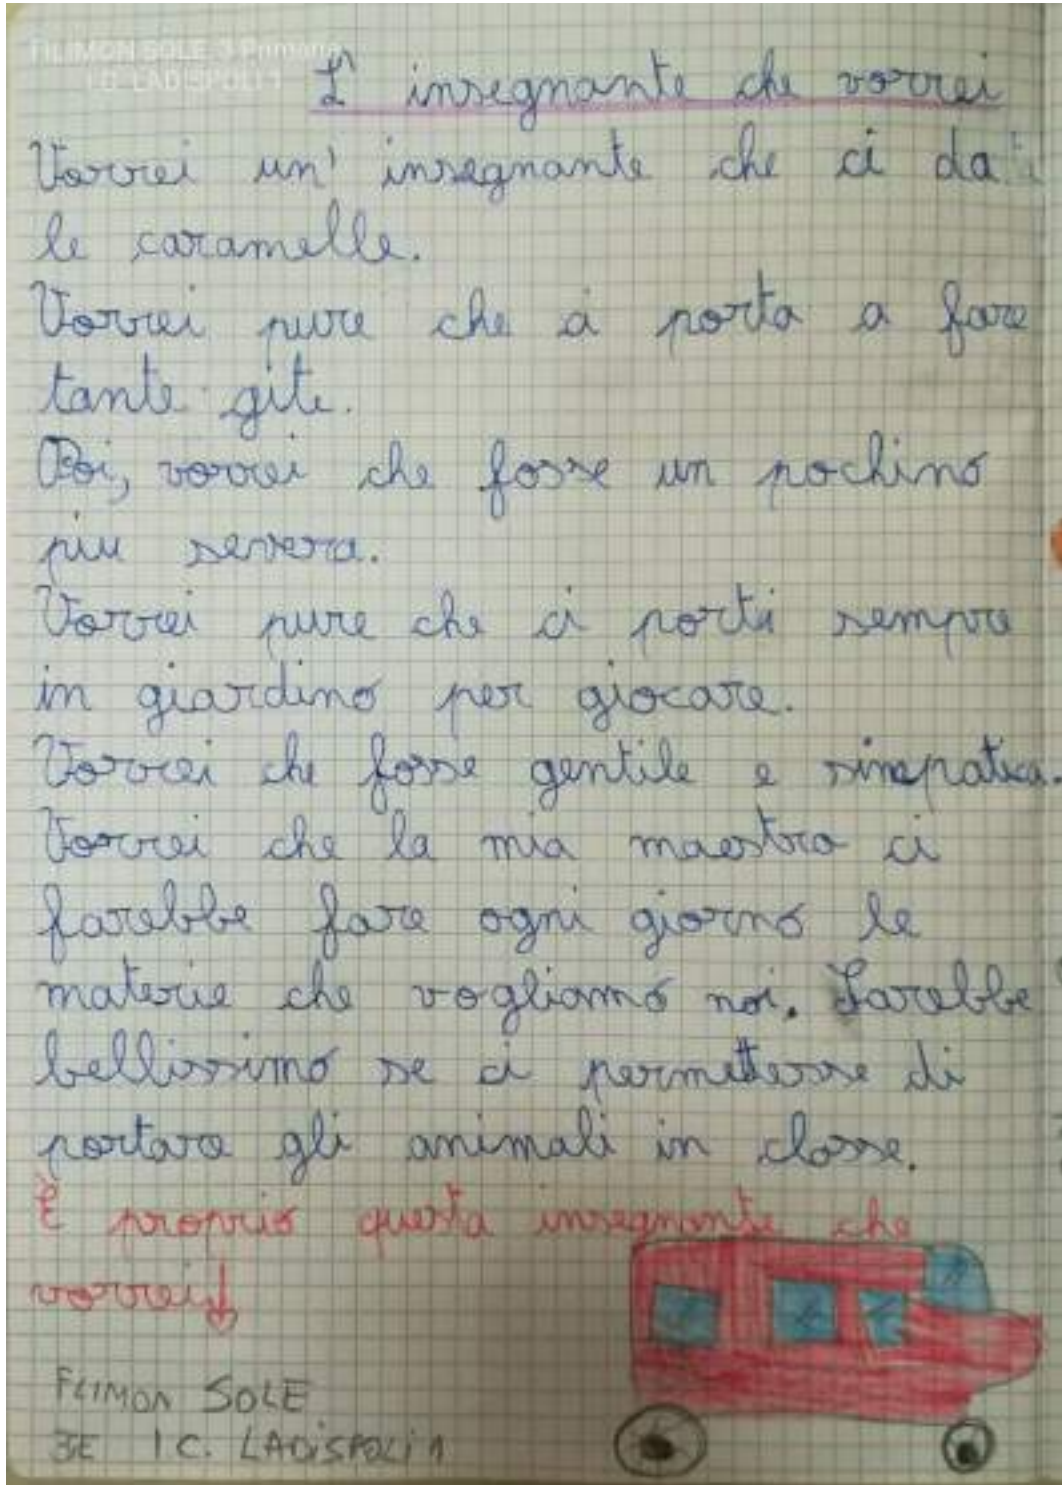 FILIMON SOLE 3 Primaria
I.C. LADISPOLI 1
L' insegnante che vorrei
Vorrei un' insegnante che ci da
le caramelle.
Vorrei pure che ci porta a fare
tante gite.
Poi, vorrei che fosse un pochino
più severa.
Vorrei pure che ci porti sempre
in giardino per giocare.
Vorrei che fosse gentile e simpatica.
Vorrei che la mia maestra ci
farebbe fare ogni giorno le
materie che vogliamo noi. Sarebbe
bellissimo se ci permettesse di
portare gli animali in classe.
È proprio questa insegnante che
vorrei
FILIMON SOLE
3E I C. LADISPOLI 1